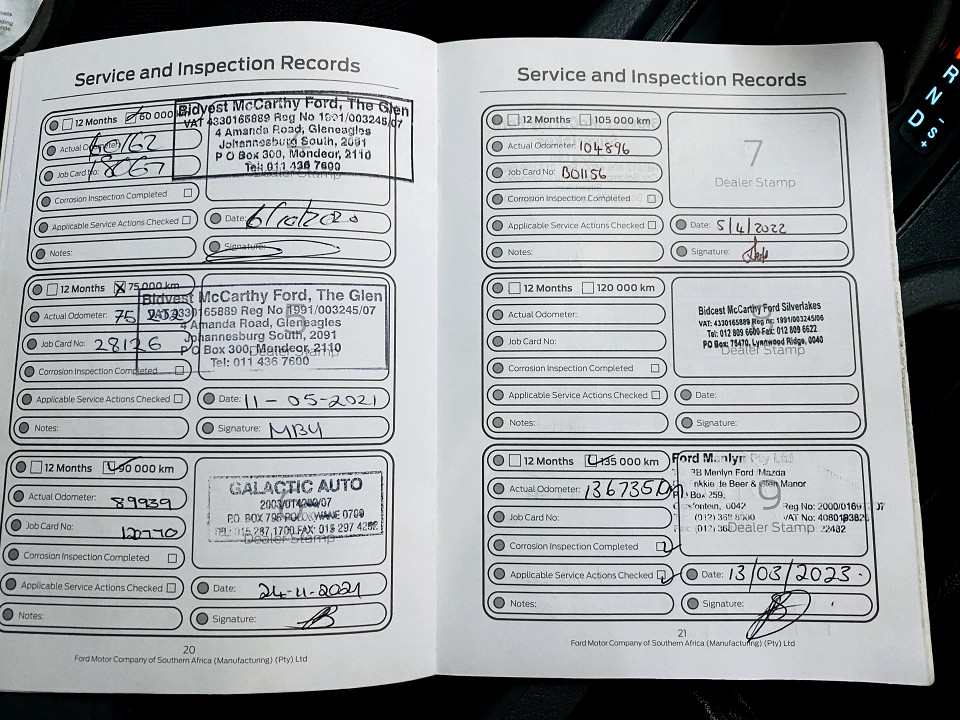 Service and Inspection Records
12 Months 60 000 km
Bidvest McCarthy Ford, The Glen
VAT 4330165889 Reg No 1991/003245/07
4 Amanda Road, Gleneagles
Johannesburg South, 2091
P O Box 300, Mondeor, 2110
Tel: 011 436 7600
Dealer Stamp
Actual Odometer:
60162
Job Card No:
18067
Corrosion Inspection Completed
Applicable Service Actions Checked
Date: 6/10/2020
Notes:
Signature:
12 Months 75 000 km
Bidvest McCarthy Ford, The Glen
VAT 4330165889 Reg No 1991/003245/07
4 Amanda Road, Gleneagles
Johannesburg South, 2091
P O Box 300, Mondeor, 2110
Tel: 011 436 7600
5
Dealer Stamp
Actual Odometer: 75 202
Job Card No: 28126
Corrosion Inspection Completed
Applicable Service Actions Checked
Date: 11-05-2021
Notes:
Signature: MBY
12 Months 90 000 km
GALACTIC AUTO
Dealer Stamp
Actual Odometer: 89939
Job Card No: 120770
Corrosion Inspection Completed
Applicable Service Actions Checked
Date: 24-11-2021
Notes:
Signature:
20
Ford Motor Company of Southern Africa (Manufacturing) (Pty) Ltd
Service and Inspection Records
12 Months 105 000 km
7
Dealer Stamp
Actual Odometer: 104896
Job Card No: B01156
Corrosion Inspection Completed
Applicable Service Actions Checked
Date: 5/4/2022
Notes:
Signature:
12 Months 120 000 km
Bidcest McCarthy Ford Silverlakes
VAT: 4330165889 Reg nr: 1991/003245/06
Tel: 012 809 6600 Fax: 012 809 6622
PO Box: 75470, Lynnwood Ridge, 0040
Dealer Stamp
Actual Odometer:
Job Card No:
Corrosion Inspection Completed
Applicable Service Actions Checked
Date:
Notes:
Signature:
12 Months 135 000 km
Ford Menlyn Pty Ltd
Menlyn Ford/Mazda
de Beer & Glen Manor
Box 259,
0042
9
Dealer Stamp
Actual Odometer: 136735km
Job Card No:
Corrosion Inspection Completed
Applicable Service Actions Checked
Date: 13/03/2023
Notes:
Signature:
21
Ford Motor Company of Southern Africa (Manufacturing) (Pty) Ltd
R
N
D
S
+
-